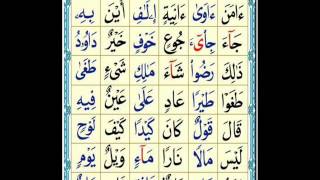 ءَامَنَ ءَاوٰى ءَانِيَةٍ إِۦلٰفِ أَيْنَ بِهِۦ
جَآءَ جِاْىٓءَ جُوْعٍ خَوْفٍ خَيْرٌ دَاوٗدُ
ذٰلِكَ رَضُوْا شَآءَ مٰلِكِ شَىْءٍ طَغٰى
طَغَوْا طَيْرًا عَادٍ عَلٰى عَيْنٌ فِيْهِ
قَالَ قَوْلٌ كَانَ كَيْدًا كَيْفَ لَوْحٍ
لَيْسَ مَالًا نَارًا مَآءٍ وَيْلٌ يَوْمٍ